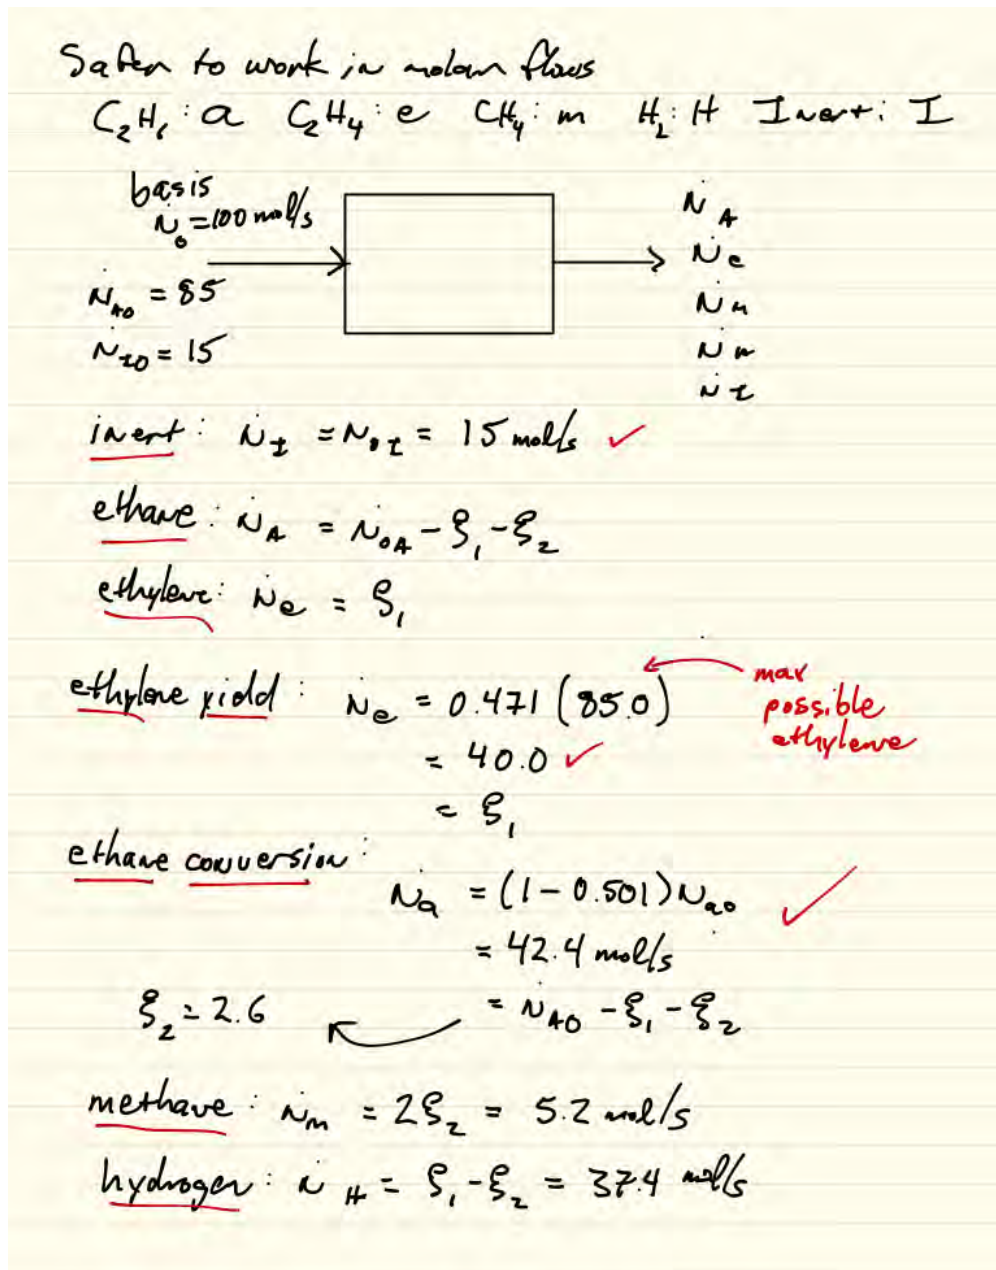 Safer to work in molar flows
C₂H₆: a C₂H₄: e CH₄: m H₂: H Inert: I
basis
Ṅ₀ = 100 mol/s
Ṅ_A0 = 85
Ṅ_I0 = 15
Ṅ_A
Ṅ_e
Ṅ_H
Ṅ_m
Ṅ_I
inert: Ṅ_I = Ṅ_0I = 15 mol/s ✓
ethane: Ṅ_A = Ṅ_0A - ξ₁ - ξ₂
ethylene: Ṅ_e = ξ₁
ethylene yield: Ṅ_e = 0.471 (85.0)
max
possible
ethylene
= 40.0 ✓
= ξ₁
ethane conversion:
Ṅ_a = (1 - 0.501) Ṅ_a0 ✓
= 42.4 mol/s
= Ṅ_A0 - ξ₁ - ξ₂
ξ₂ = 2.6
methane: Ṅ_m = 2ξ₂ = 5.2 mol/s
hydrogen: Ṅ_H = ξ₁ - ξ₂ = 37.4 mol/s